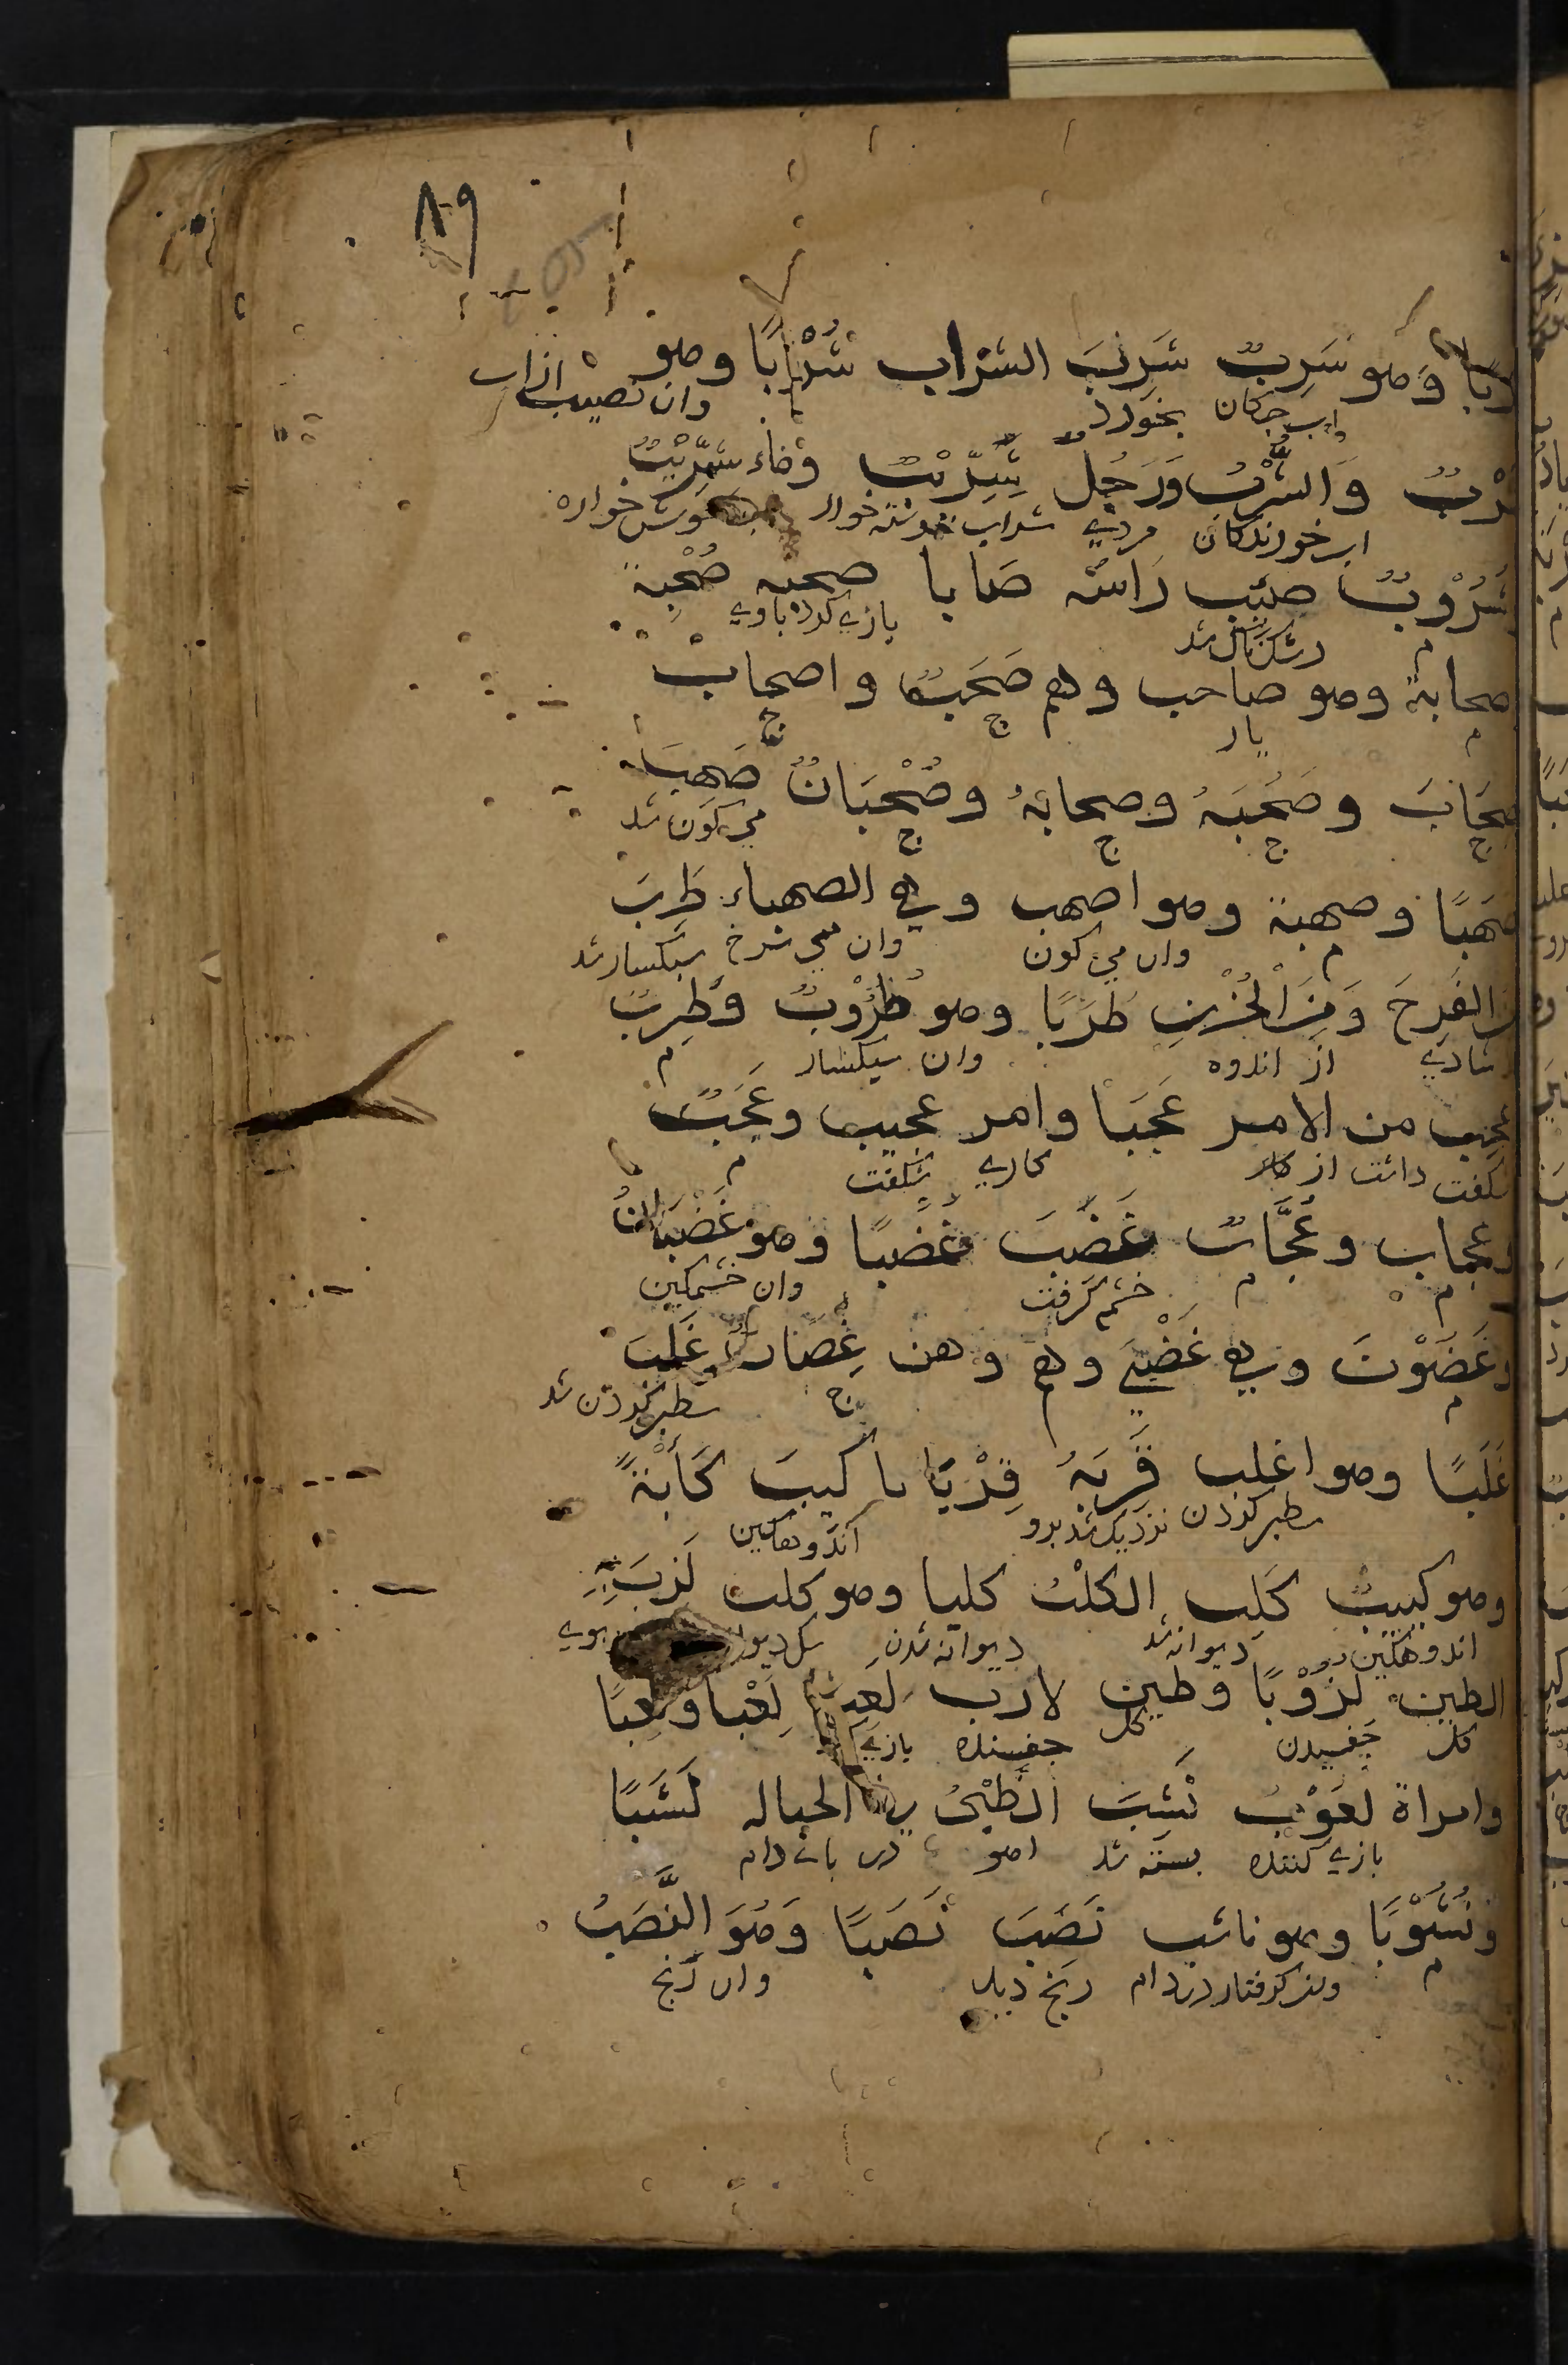 ٨٩
وهو سَرِبٌ شَرِبَ الشراب شُرْبًا وهو
واب چكان بخورد وان نصيب از اب
شِرْبٌ وَالشَّرْبُ وَرَجُل شِرِّيْبٌ وماء شَرِيْبٌ
اب خورندكان مردي شراب خوار خوش خواره
شَرُوْبٌ صئب رَاسُه صابا صحبه صُحْبة
م رشكناك شد يازي كرد باوي
صحابة وهو صاحب وهم صَحَبٌ واصحابٌ
م يار ج ج
صِحَابَ وصُحْبَهُ وصحابَهُ وصُحْبَانٌ صَهِبَ
ج ج ج ج مي كون شد
صَهَبًا وصهبة وهو اصهب وهي الصهباء طَرِبَ
م وان مي كون وان مي سرخ سبكسار شد
مِنَ الفَرِحَ وَمِنَ الْحُزْنِ طَرَبًا وهو طَرُوْبٌ وَطَرِبٌ
شادي از اندوه وان سبكسار م
عجِب من الامر عَجَبًا وامر عجيب وعَجَبٌ
شكفت داشت از كار كاري شكفت م
وعجاب وعُجَّابٌ غَضِبَ غَضَبًا وهو غَضْبَانُ
م م خشم كرفت وان خشمكين
وغَضُوْبٌ وهي غَضْبَى وهم وهن غِضَابٌ غَلِبَ
م ج سطبر كردن شد
غَلَبًا وهو اغلب قَرِبَهُ قِرْبَانًا كَيِبَ كَأبَةً
سطبر كردن نزديك شد بدو اندوهكين
وهو كييبٌ كَلِبَ الكلْبُ كلبا وهو كلب لَزِبَ
اندوهكين ديوانه شد ديوانه شدن سك ديوانه
الطين لُزُوْبًا وطين لازب لَعِبَ لِعْبًا ولَعِبًا
كل چفسيدن كل چفسنده بازي
وامراة لعُوْبٌ نَشِبَ الظَّبْيُ في الحباله نَشَبًا
بازي كننده بسته شد اهو در دام
ونُشُوْبًا وهو ناشب نَصِبَ نَصَبًا وَهُوَ النَّصَبُ
م كرفتار در دام رنج ديد وان رنج